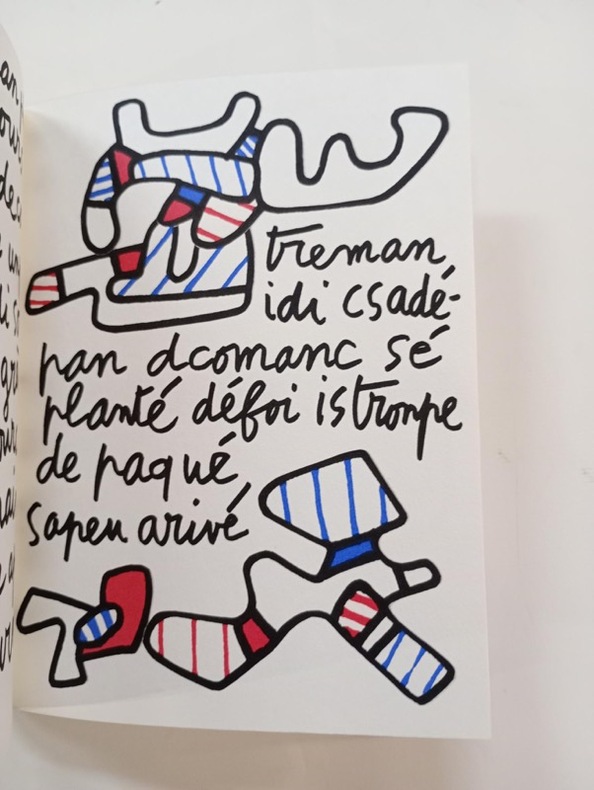 treman
idi csadé-
pan dcomanc sé
planté défoi istronpe
de paqué
sapeu arivé